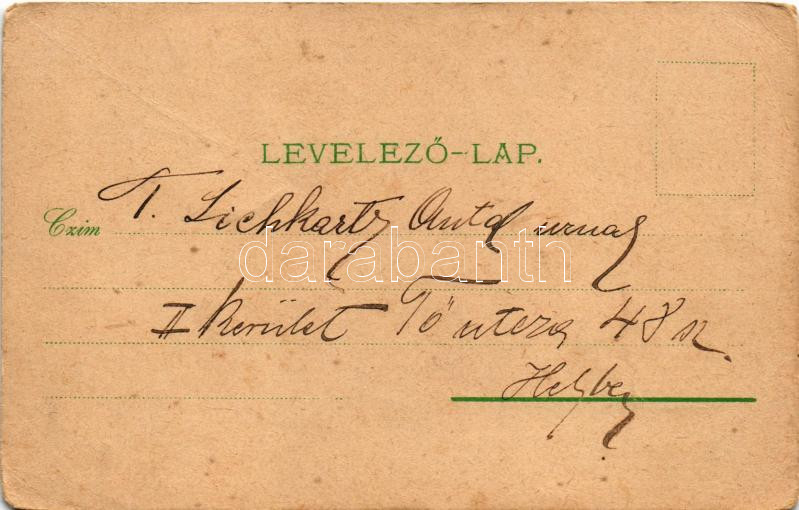 LEVELEZŐ-LAP.
Czim T. Lichkartz Antal urnak
II kerület Fő utcza 48 sz.
Helyben
darabanth